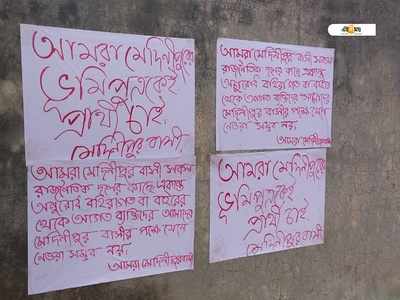 আমরা মেদিনীপুরে
ভূমিপুত্রকেই
প্রার্থী চাই,
মেদিনীপুর বাসী
আমরা মেদিনীপুর বাসী সকল
রাজনৈতিক দলের কাছে একান্ত
অনুরোধ বহিরাগত বা বাইরের
থেকে আগত ব্যক্তিদের আমাদের
মেদিনীপুর বাসীর পক্ষে মেনে
নেওয়া সম্ভব নয়
আমরা মেদিনীপুরবাসী
আমরা মেদিনীপুর বাসী সকল
রাজনৈতিক দলের কাছে একান্ত
অনুরোধ বহিরাগত বা বাইরের
থেকে আগত ব্যক্তিদের আমাদের
মেদিনীপুর বাসীর পক্ষে মেনে
নেওয়া সম্ভব নয়
আমরা মেদিনীপুরবাসী
আমরা মেদিনীপুরে
ভূমিপুত্রকেই
প্রার্থী চাই
মেদিনীপুর বাসী